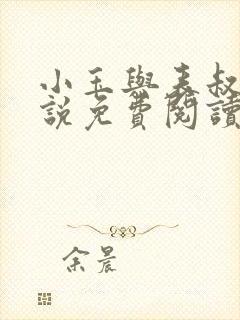 小玉與表叔
說免費閱讀
余晨